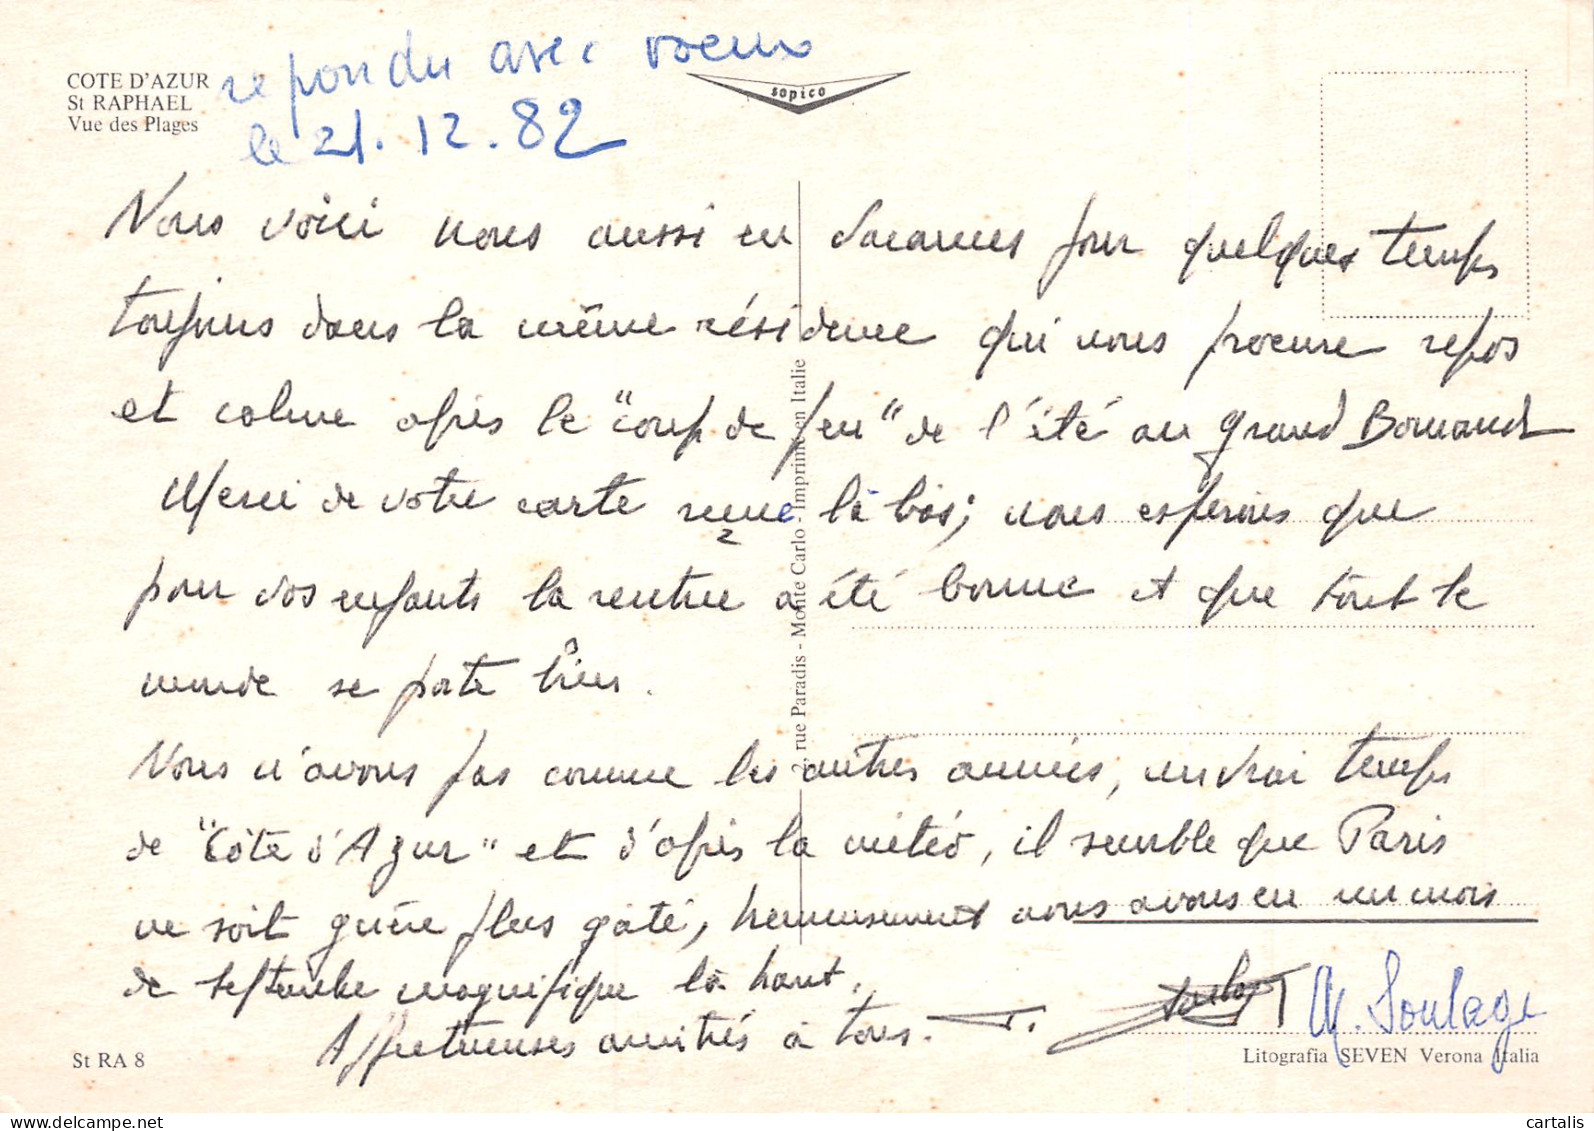 COTE D'AZUR
St RAPHAEL
Vue des Plages
repondu avec voeux
le 21.12.82
sopico
Nous voici nous aussi en vacances pour quelques temps
toujours dans la même résidence qui nous procure repos
et calme après le "coup de feu" de l'été au Grand Bornand
Merci de votre carte reçue là bas; nous esperons que
pour vos enfants la rentrée a été bonne et que tout le
monde se porte bien.
Nous n'avons pas comme les autres années, un vrai temps
de "Côte d'Azur" et d'après la météo, il semble que Paris
ne soit guère plus gâté, heureusement nous avons eu un mois
de septembre magnifique là haut.
Affectueuses amitiés à tous.
M. Soulage
2, rue Paradis - Monte Carlo - Imprimé en Italie
St RA 8
Litografia SEVEN Verona Italia
cartalis